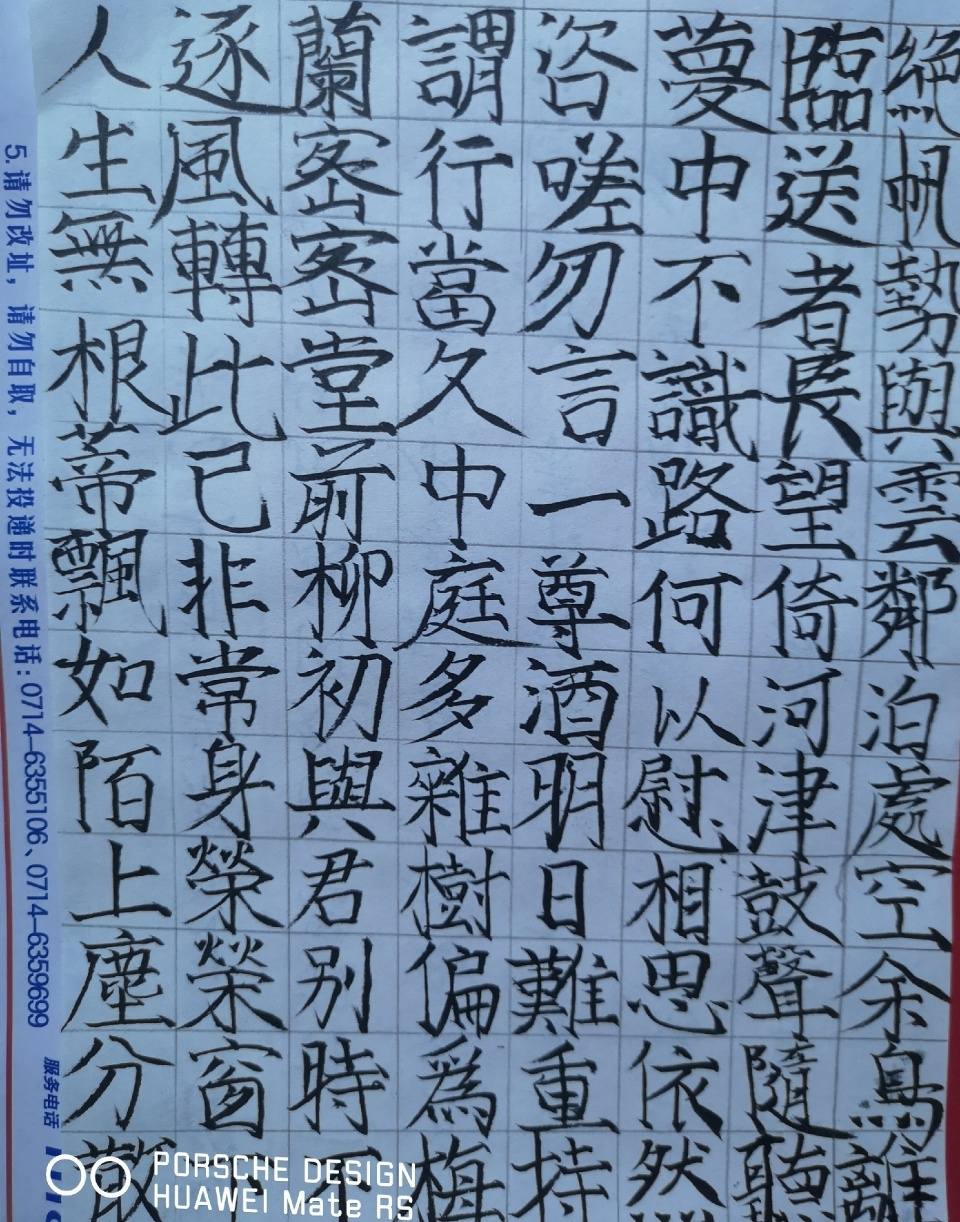 人生無根蒂飄如陌上塵分散
逐風轉此已非常身榮榮窗下
蘭密密堂前柳初與君別時不
謂行當久中庭多雜樹偏為梅
咨嗟勿言一尊酒明日難重持
夢中不識路何以慰相思依然
臨送者長望倚河津鼓聲隨聽
絕帆勢與雲鄰泊處空余鳥離
5.请勿改址，请勿自取，无法投递时联系电话:0714-6355106、0714-6359699
服务电话
PORSCHE DESIGN
HUAWEI Mate RS